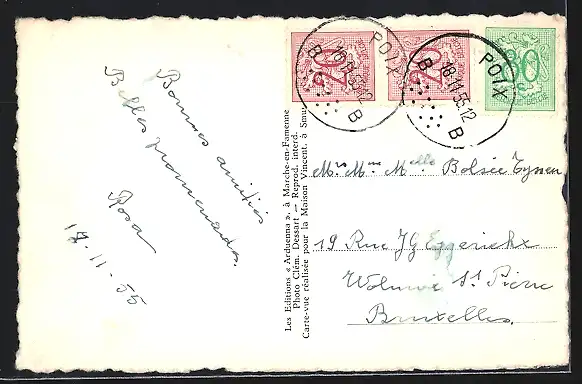 Bonnes amitiés
Belles promenades.
Rosa
17-11-55
Les Editions « Arduenna », à Marche-en-Famenne
Photo Clém. Dessart — Reprod. interd.
Carte-vue réalisée pour la Maison Vincent, à Smu
POIX
18-11-55.12
B B
POIX
18-11-55.12
B B
20
20
30
Mrs Mme Melle Bolsée
19 Rue JG Eggerickx
Woluwé St Pierre
Bruxelles.